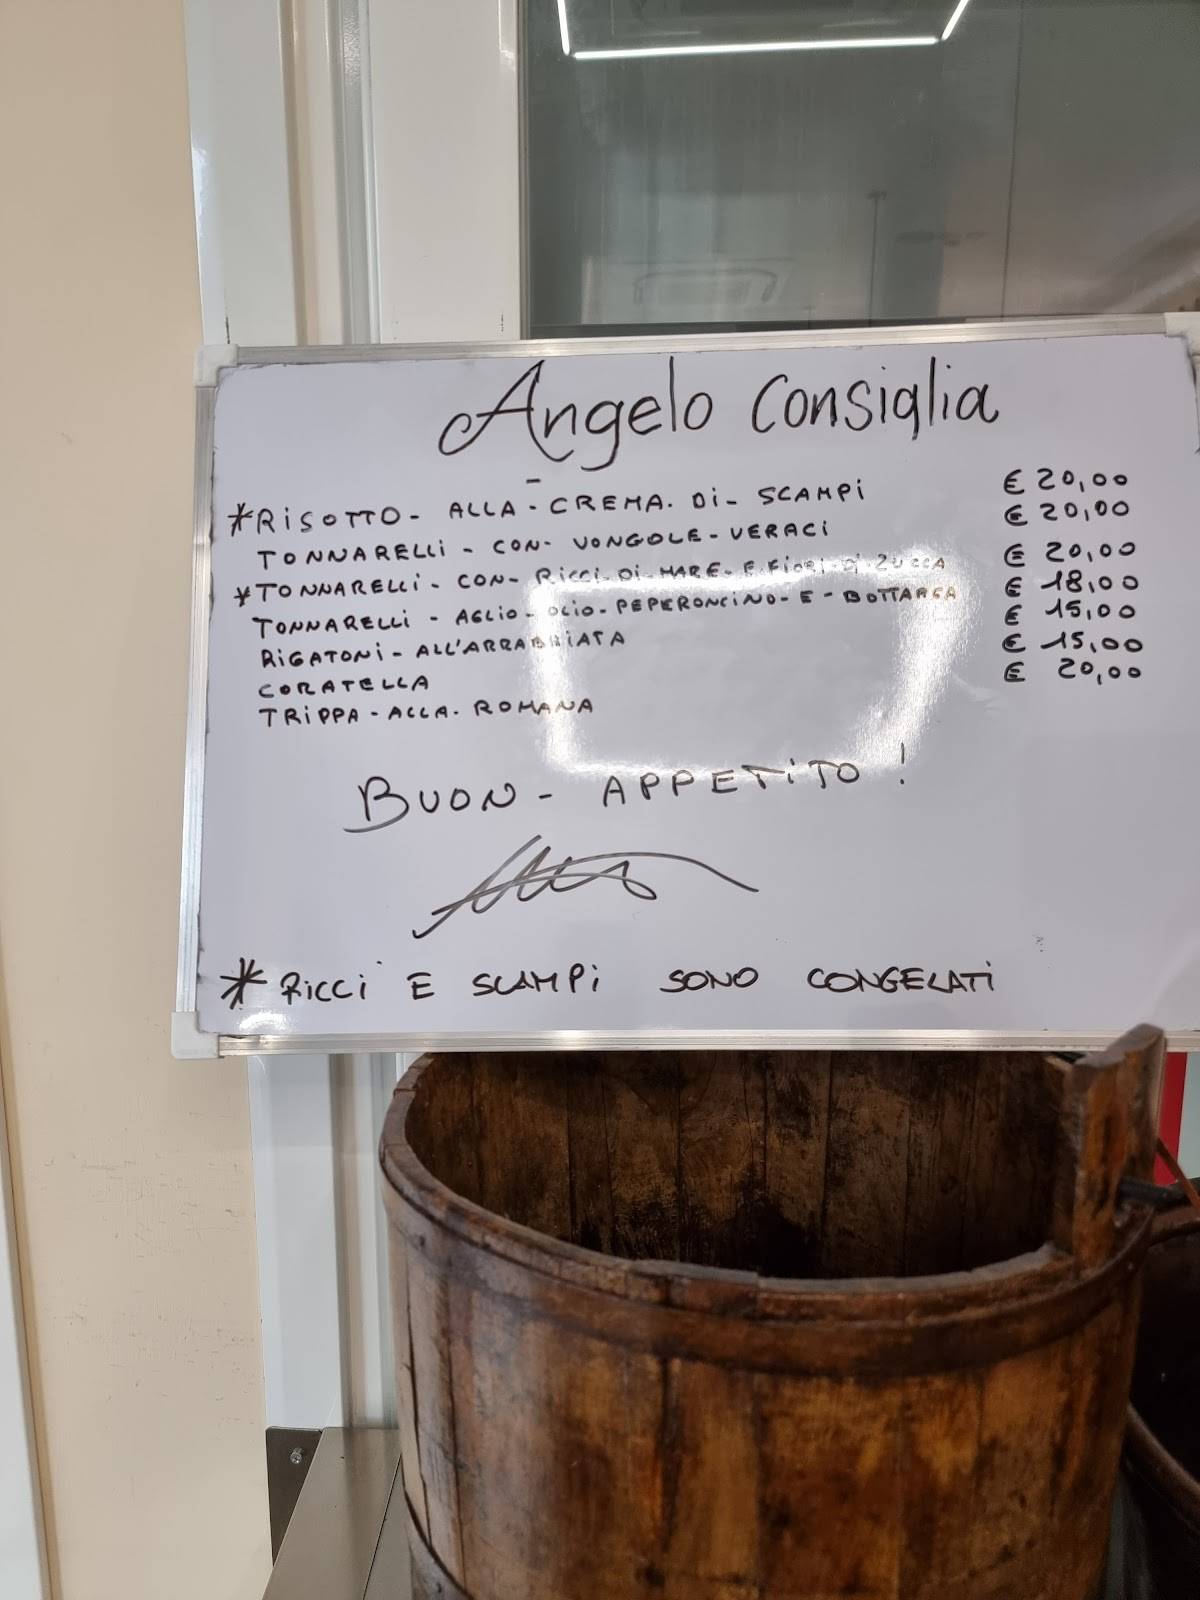 Angelo Consiglia
*RISOTTO - ALLA - CREMA. DI - SCAMPI € 20,00
TONNARELLI - CON - VONGOLE - VERACI € 20,00
*TONNARELLI - CON - RICCI - DI - MARE - E - FIORI - DI - ZUCCA € 20,00
TONNARELLI - AGLIO - OLIO - PEPERONCINO - E - BOTTARGA € 18,00
RIGATONI - ALL'ARRABBIATA € 15,00
CORATELLA € 15,00
TRIPPA - ALLA. ROMANA € 20,00
BUON - APPETITO !
* RICCI E SCAMPI SONO CONGELATI